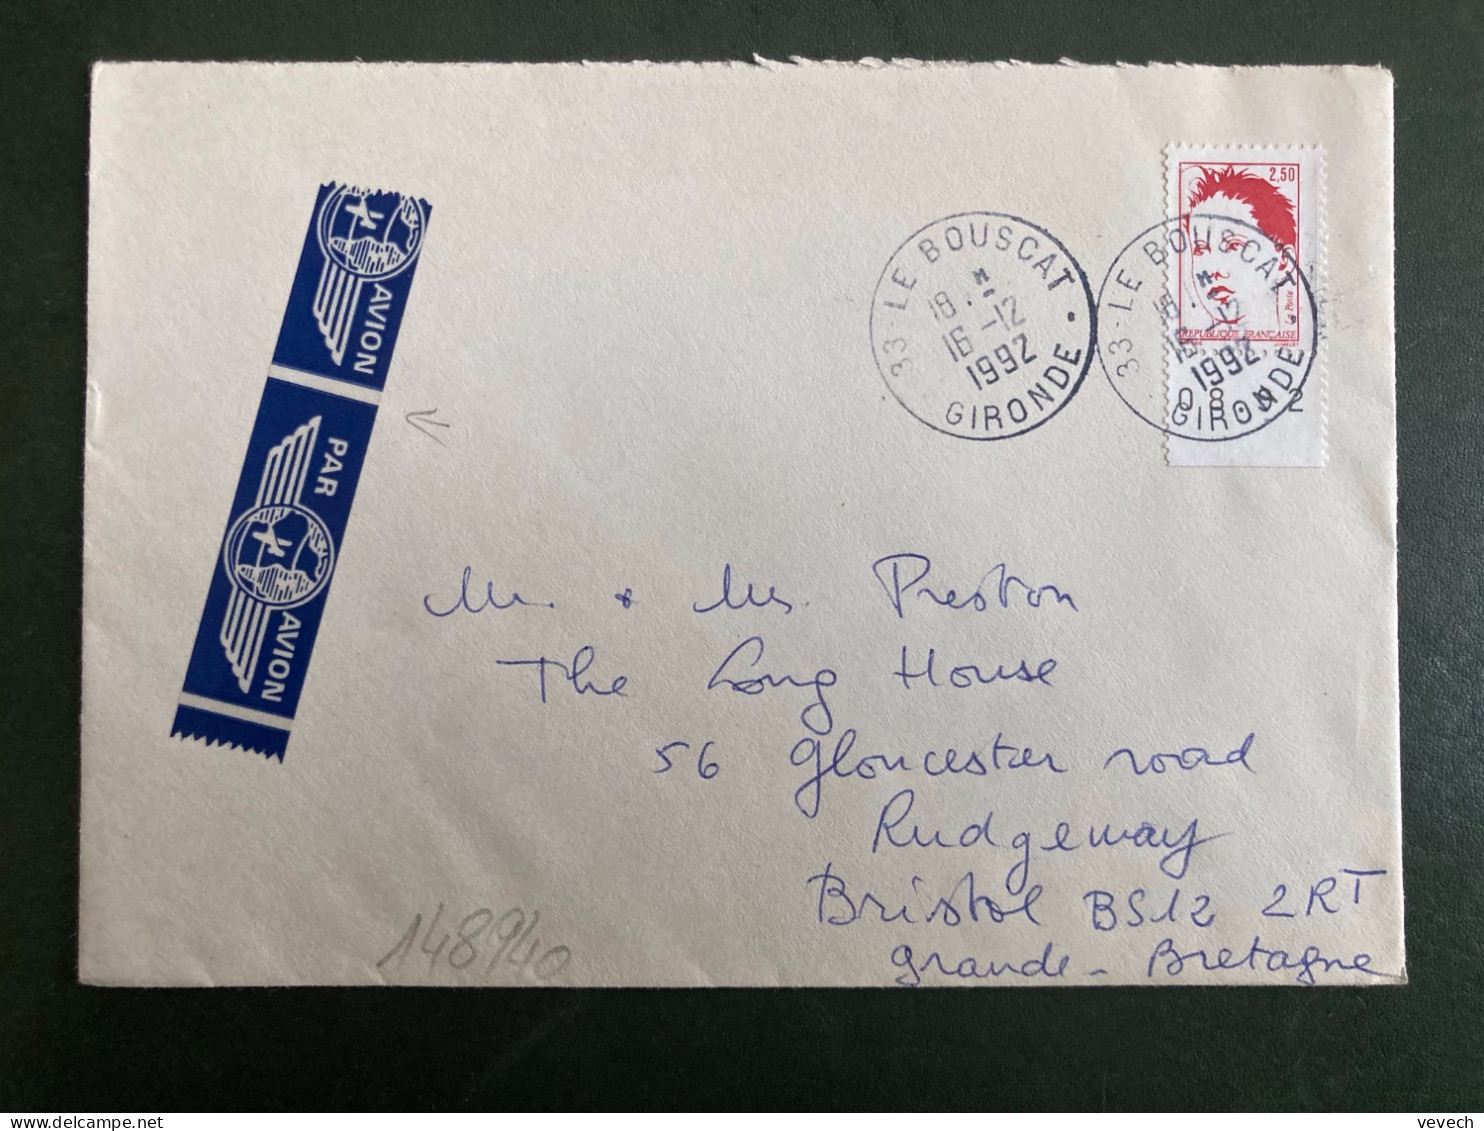 AVION
PAR
AVION
33-LE BOUSCAT
18
16-12
1992
GIRONDE
33-LE BOUSCAT
16-12
1992
GIRONDE
2,50
La Poste
REPUBLIQUE FRANÇAISE
Mr. & Ms. Preston
The Long House
56 Gloucester road
Rudgeway
Bristol BS12 2RT
Grande-Bretagne
148940
vevech